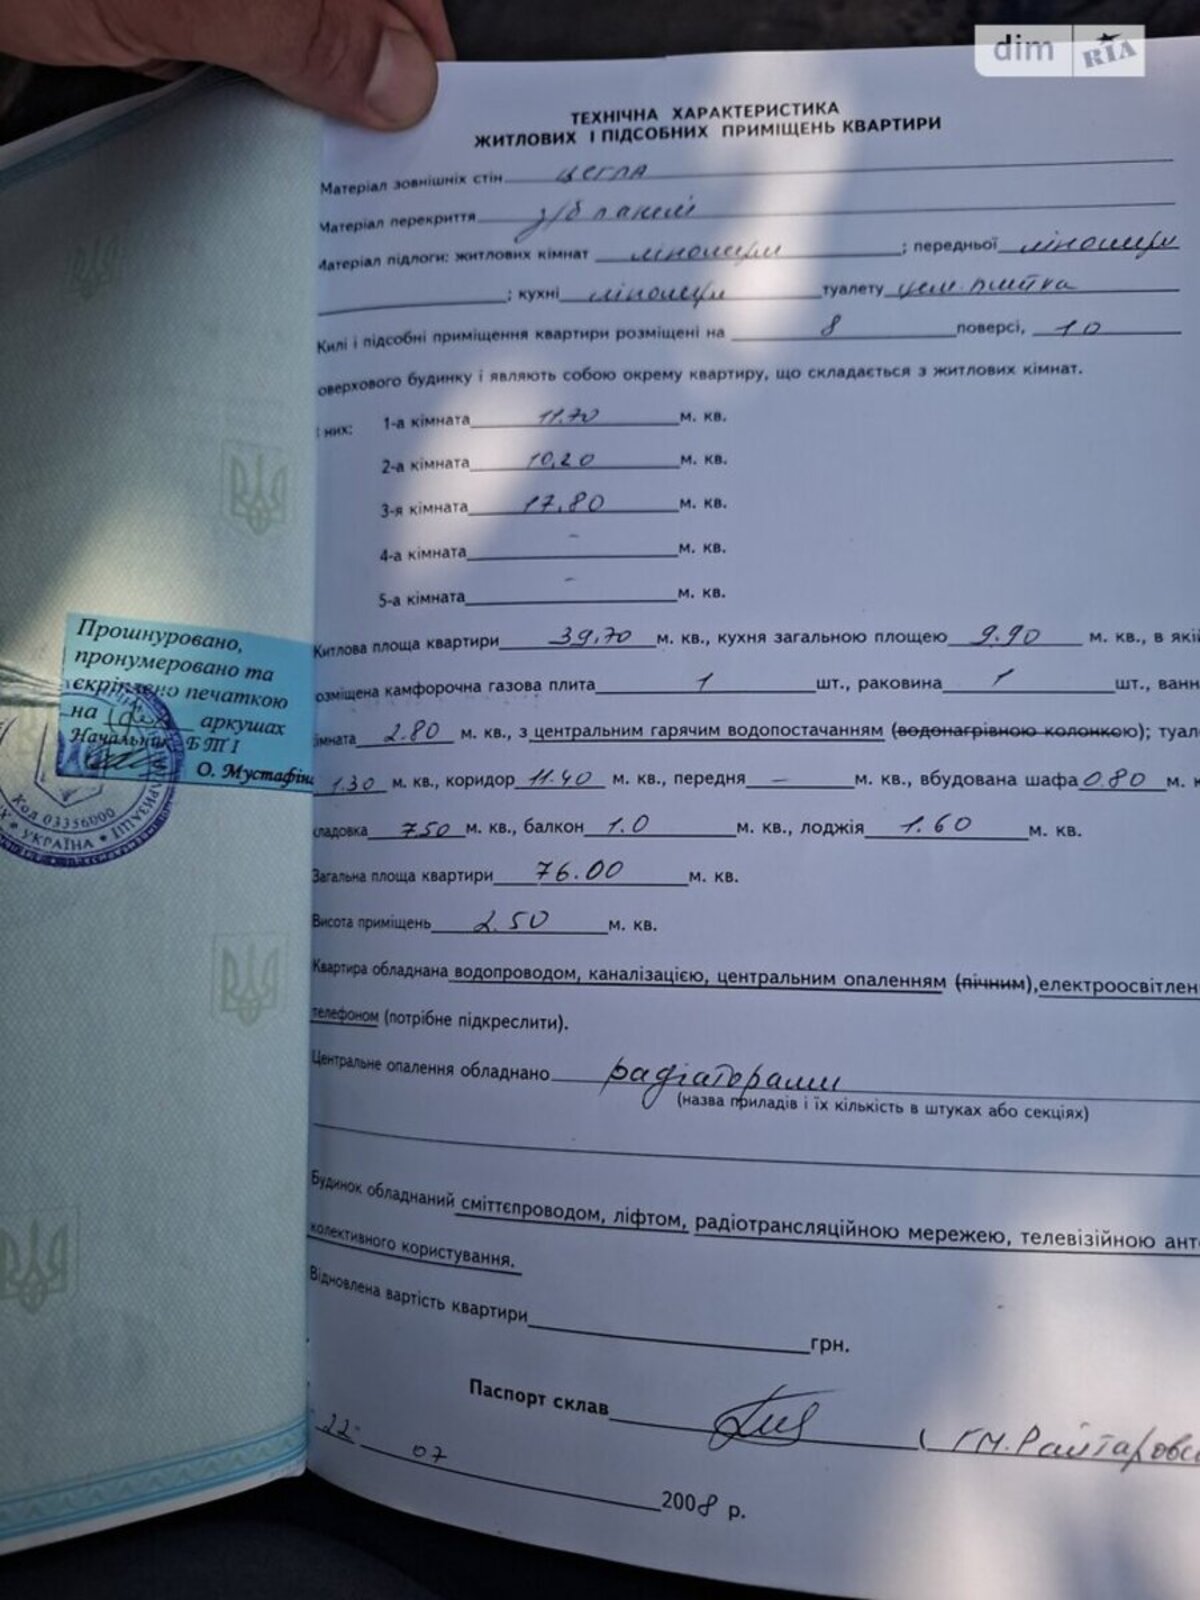 dim RIA
ТЕХНІЧНА ХАРАКТЕРИСТИКА
ЖИТЛОВИХ І ПІДСОБНИХ ПРИМІЩЕНЬ КВАРТИРИ
Матеріал зовнішніх стін цегла
Матеріал перекриття з/б панелі
Матеріал підлоги: житлових кімнат лінолеум ; передньої лінолеум
; кухні лінолеум туалету цем. плитка
Килі і підсобні приміщення квартири розміщені на 8 поверсі, 10
оверхового будинку і являють собою окрему квартиру, що складається з житлових кімнат.
них: 1-а кімната 11.70 м. кв.
2-а кімната 10,20 м. кв.
3-я кімната 17,80 м. кв.
4-а кімната - м. кв.
5-а кімната - м. кв.
Китлова площа квартири 39,70 м. кв., кухня загальною площею 9.90 м. кв., в які
озміщена камфорочна газова плита 1 шт., раковина 1 шт., ванн
імната 2.80 м. кв., з центральним гарячим водопостачанням (водонагрівною колонкою); туал
1.30 м. кв., коридор 11.40 м. кв., передня — м. кв., вбудована шафа 0.80 м. к
кладовка 7.50 м. кв., балкон 1.0 м. кв., лоджія 1.60 м. кв.
Загальна площа квартири 76.00 м. кв.
Висота приміщень 2.50 м. кв.
Квартира обладнана водопроводом, каналізацією, центральним опаленням (пічним),електроосвітлен
телефоном (потрібне підкреслити).
Центральне опалення обладнано радіаторами
(назва приладів і їх кількість в штуках або секціях)
Будинок обладнаний сміттєпроводом, ліфтом, радіотрансляційною мережею, телевізійною ант
колективного користування.
Відновлена вартість квартири грн.
Паспорт склав ( Г.М. Райтаровс
22 07 2008 р.
Прошнуровано,
пронумеровано та
скріплено печаткою
на аркушах
Начальник БТІ
О. Мустафін
Код 03356000
УКРАЇНА